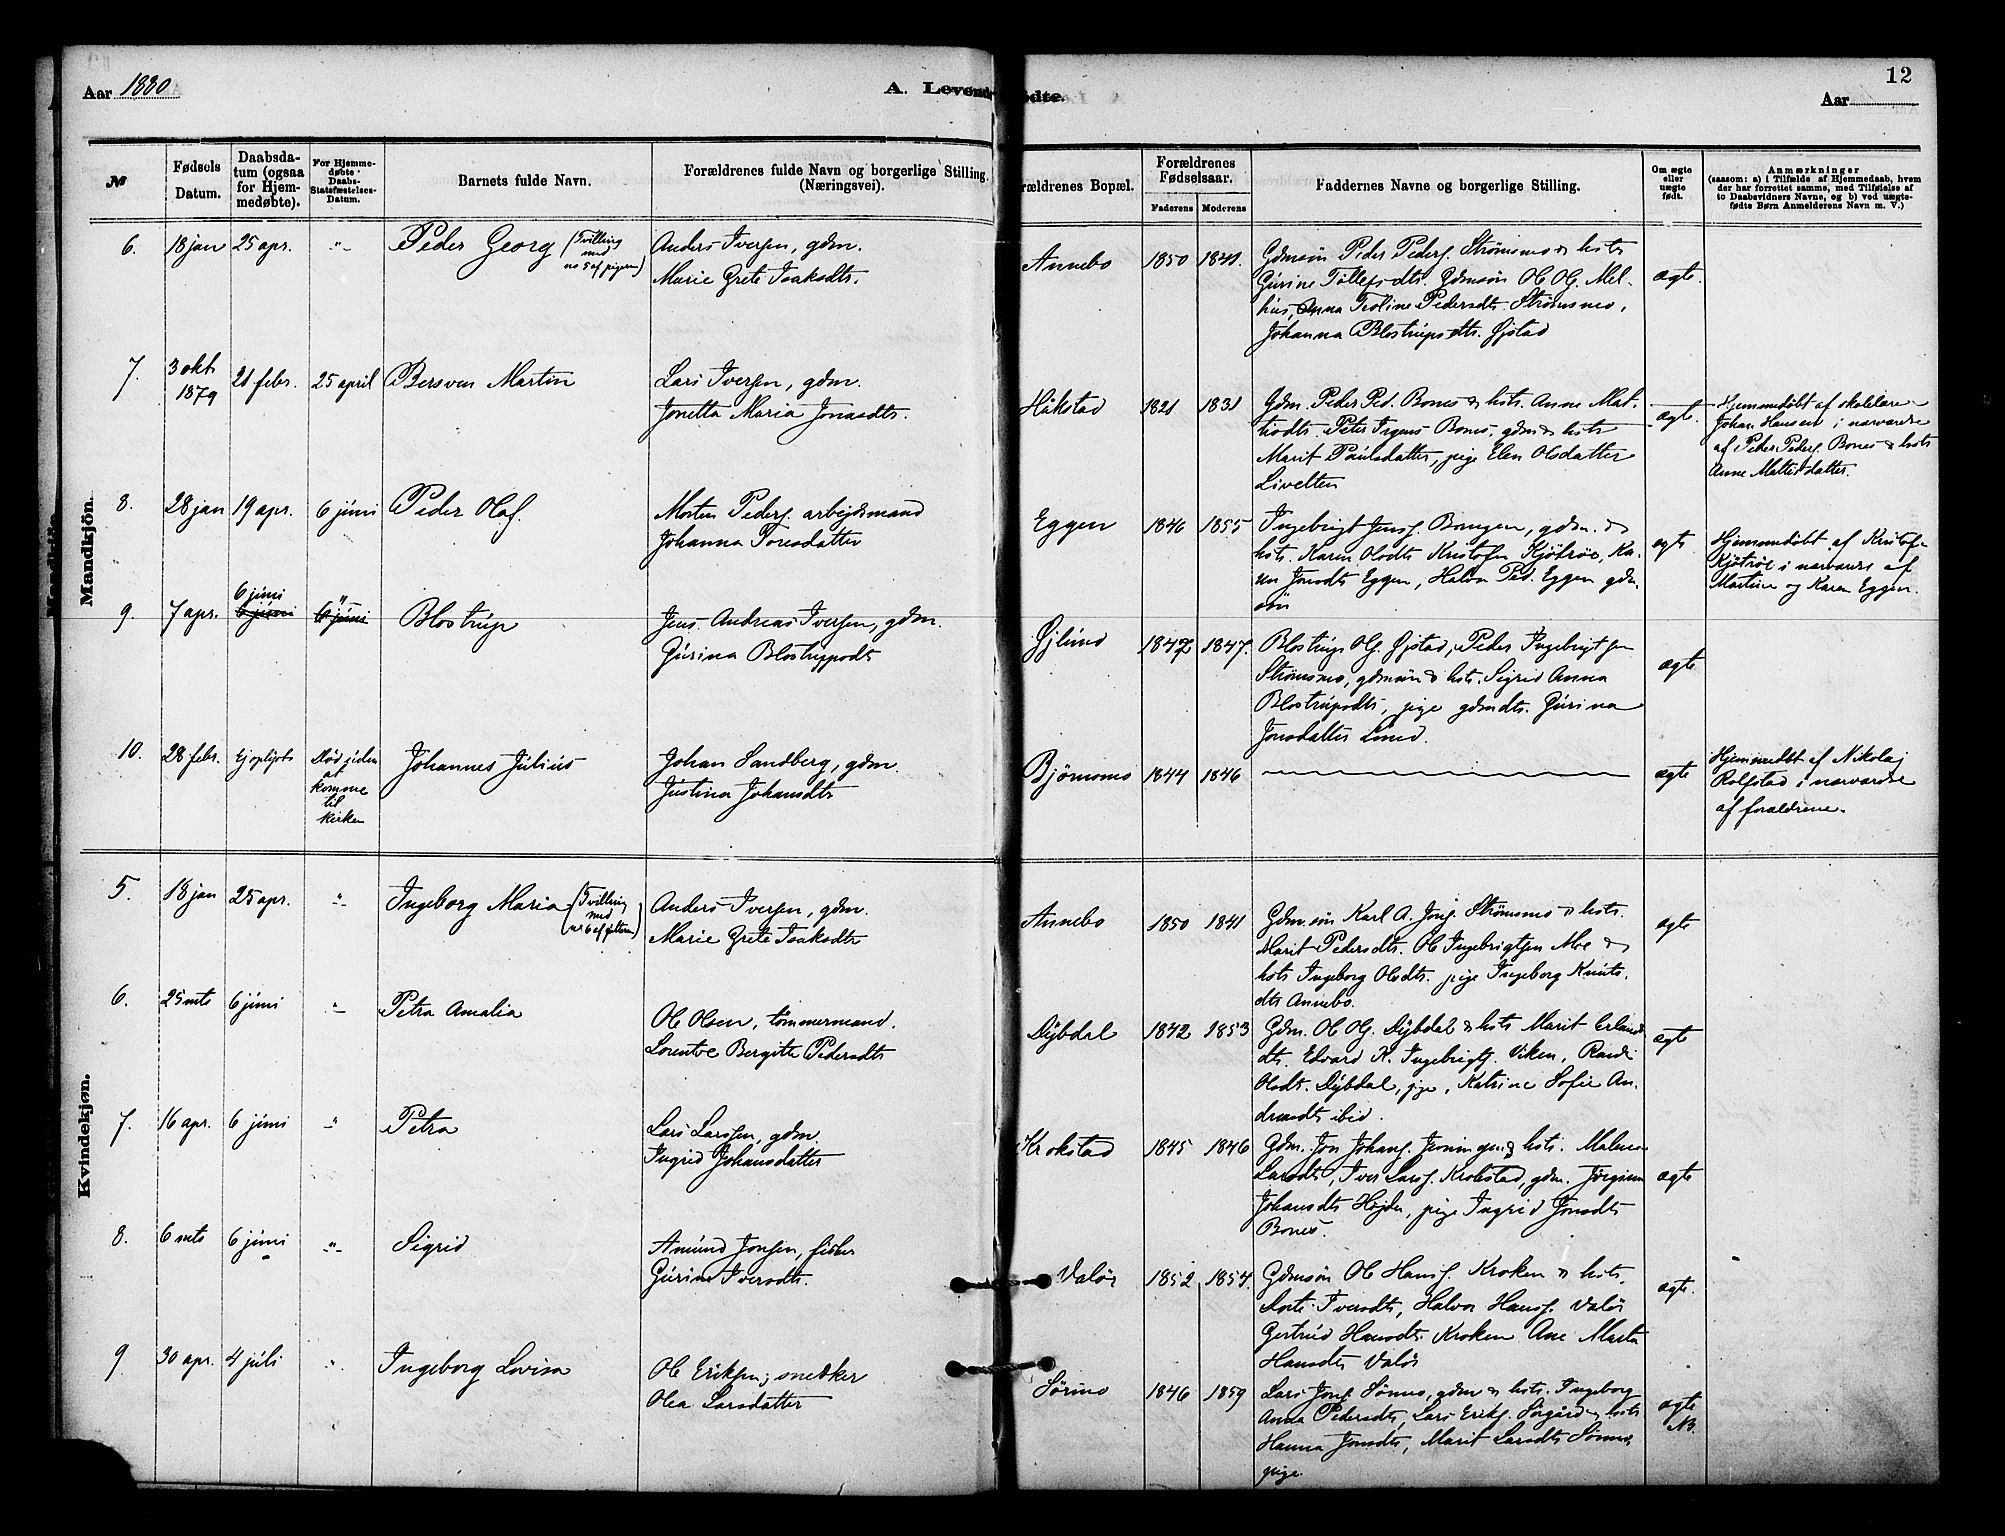 Aar 1880
A. Levendefødte.
12
Aar
№
Fødsels Datum.
Daabsda-
tum (ogsaa
for Hjem-
medøbte).
For Hjemme-
døbte
Daabs-
Statsfæstelses-
Datum.
Barnets fulde Navn.
Forældrenes fulde Navn og borgerlige Stilling
(Næringsvei).
rældrenes Bopæl.
Forældrenes
Fødselsaar.
Faderens Moderens
Faddernes Navne og borgerlige Stilling.
Om ægte
eller
uægte
født.
Anmærkninger
(saasom: a) i Tilfælde af Hjemmedaab, hvem
der har forrettet samme, med Tilføielse af
to Daabsvidners Navne, og b) ved uægte-
fødte Børn Anmelderens Navn m. V.)
Mandkjön.
6. 18 jan 25 apr. " Peder Georg (Tvilling
med
no 5 af pigerne)
Anders Iversen, gdm.
Marie Grete Isaksdtr.
Annebo 1850 1841.
Gdmsön Peder Peders. Strömsmo & hstr
Gurine Tollefsdtr. Gdmsön Ol Ols. Mel-
hus, Anna Teoline Pedersdtr. Strömsmo,
Johanna Blostrupsdtr. Gjstad
ægte.
7. 3 okt
1879 21 febr. 25 april Bersven Martin
Lars Iversen, gdm.
Jonetta Maria Jonasdtr.
Håkstad 1821 1831
Gdm. Peder Ped. Bones & hstr. Anne Mat-
hisdtr. Peter Irgens Bones, gdm & hstr
Marit Paulsdatter, pige Elen Olsdatter
Livelten
ægte.
Hjemmedöbt af skolelærer
Johan Hansen i nærværelse
af Peder Peders. Bones & hstr
Anne Mattisdatter.
8. 28 jan 19 apr. 6 juni Peder Olaf.
Morten Peders. arbejdsmand
Johanna Toresdatter
Eggen 1846 1855
Ingebrigt Jens. Bongen, gdm. &
hstr. Karen Olsdtr Kristofer Kjötröe, Ka-
ren Jonsdtr Eggen, Halvor Ped. Eggen gdm
sön
ægte
Hjemmedöbt af Kristofer
Kjötröe i nærværelse af
Martine og Karen Eggen.
9. 7 apr. 6 juni
6 juni 6 juni " Blostrup
Jens Andreas Iversen, gdm.
Gurina Blostrupsdtr
Gjlund 1847 1847.
Blostrup Ols. Gjstad, Peder Ingebrigtsen
Strömsmo, gdmsön & hstr. Sigrid Anna
Blostrupsdtr, pige gdmdtr. Gurina
Jonsdatter Lund.
ægte
10. 28 febr. Ej oplyst Död siden
at
komme
til
kirken Johannes Julius
Johan Sandberg, gdm.
Justina Johansdtr
Björnsmo 1844 1846
ægte
Hjemmedöbt af Nikolaj
Rolfstad i nærværelse
af forældrene.
Kvindekjøn.
5. 18 jan 25 apr. " Ingeborg Maria (Tvilling
med
nr 6 af gutterne)
Anders Iversen, gdm.
Marie Grete Isaksdtr
Annebo 1850 1841
Gdmsön Karl A. Jons. Strömsmo & hstr.
Marit Pedersdtr. Ole Ingebrigtsen Moe &
hstr Ingeborg Olsdtr. pige Ingeborg Knuts-
dtr Annebo.
ægte
6. 25 mts 6 juni " Petra Amalia
Ole Olsen, tömmermand.
Lorentse Bergitte Pedersdtr
Dybdal 1842 1853
Gdm. Ol Ols. Dybdal & hstr Marit Erlands
dtr. Edvard K. Ingebrigts. Viken, Randi
Olsdtr. Dybdal, pige, Katrine Sofie An-
dreasdtr ibid.
ægte
7. 16 apr. 6 juni " Petra
Lars Larssen, gdm.
Ingrid Johansdatter
Krokstad 1845 1846
Gdm. Jon Johans. Jenningen & hstr. Malena
Larsdtr, Iver Lars. Krokstad, gdm. Jörgine
Johansdtr Höjden, pige Ingrid Jonsdtr
Bones.
ægte
8. 6 mts 6 juni " Sigrid
Amund Jonsen, fisker
Gurine Iversdtr.
Valör 1852 1854.
Gdmsön Ole Hans. Kroken & hstr.
Dorte Iversdtr, Halvor Hans. Valör
Gertrud Hansdtr. Kroken Ane Marta
Hansdtr Valör
ægte.
9 30 apr. 4 juli " Ingeborg Lovisa
Ole Eriksen, snedker
Olea Larsdatter
Sörmo 1846 1859
Lars Jons. Sörmo, gdm & hstr. Ingeborg
Anna Pedersdtr, Lars Eriks. Sörgård & hstr
Hanna Jonsdtr, Marit Larsdtr Sörmo,
pige
ægte
NB.